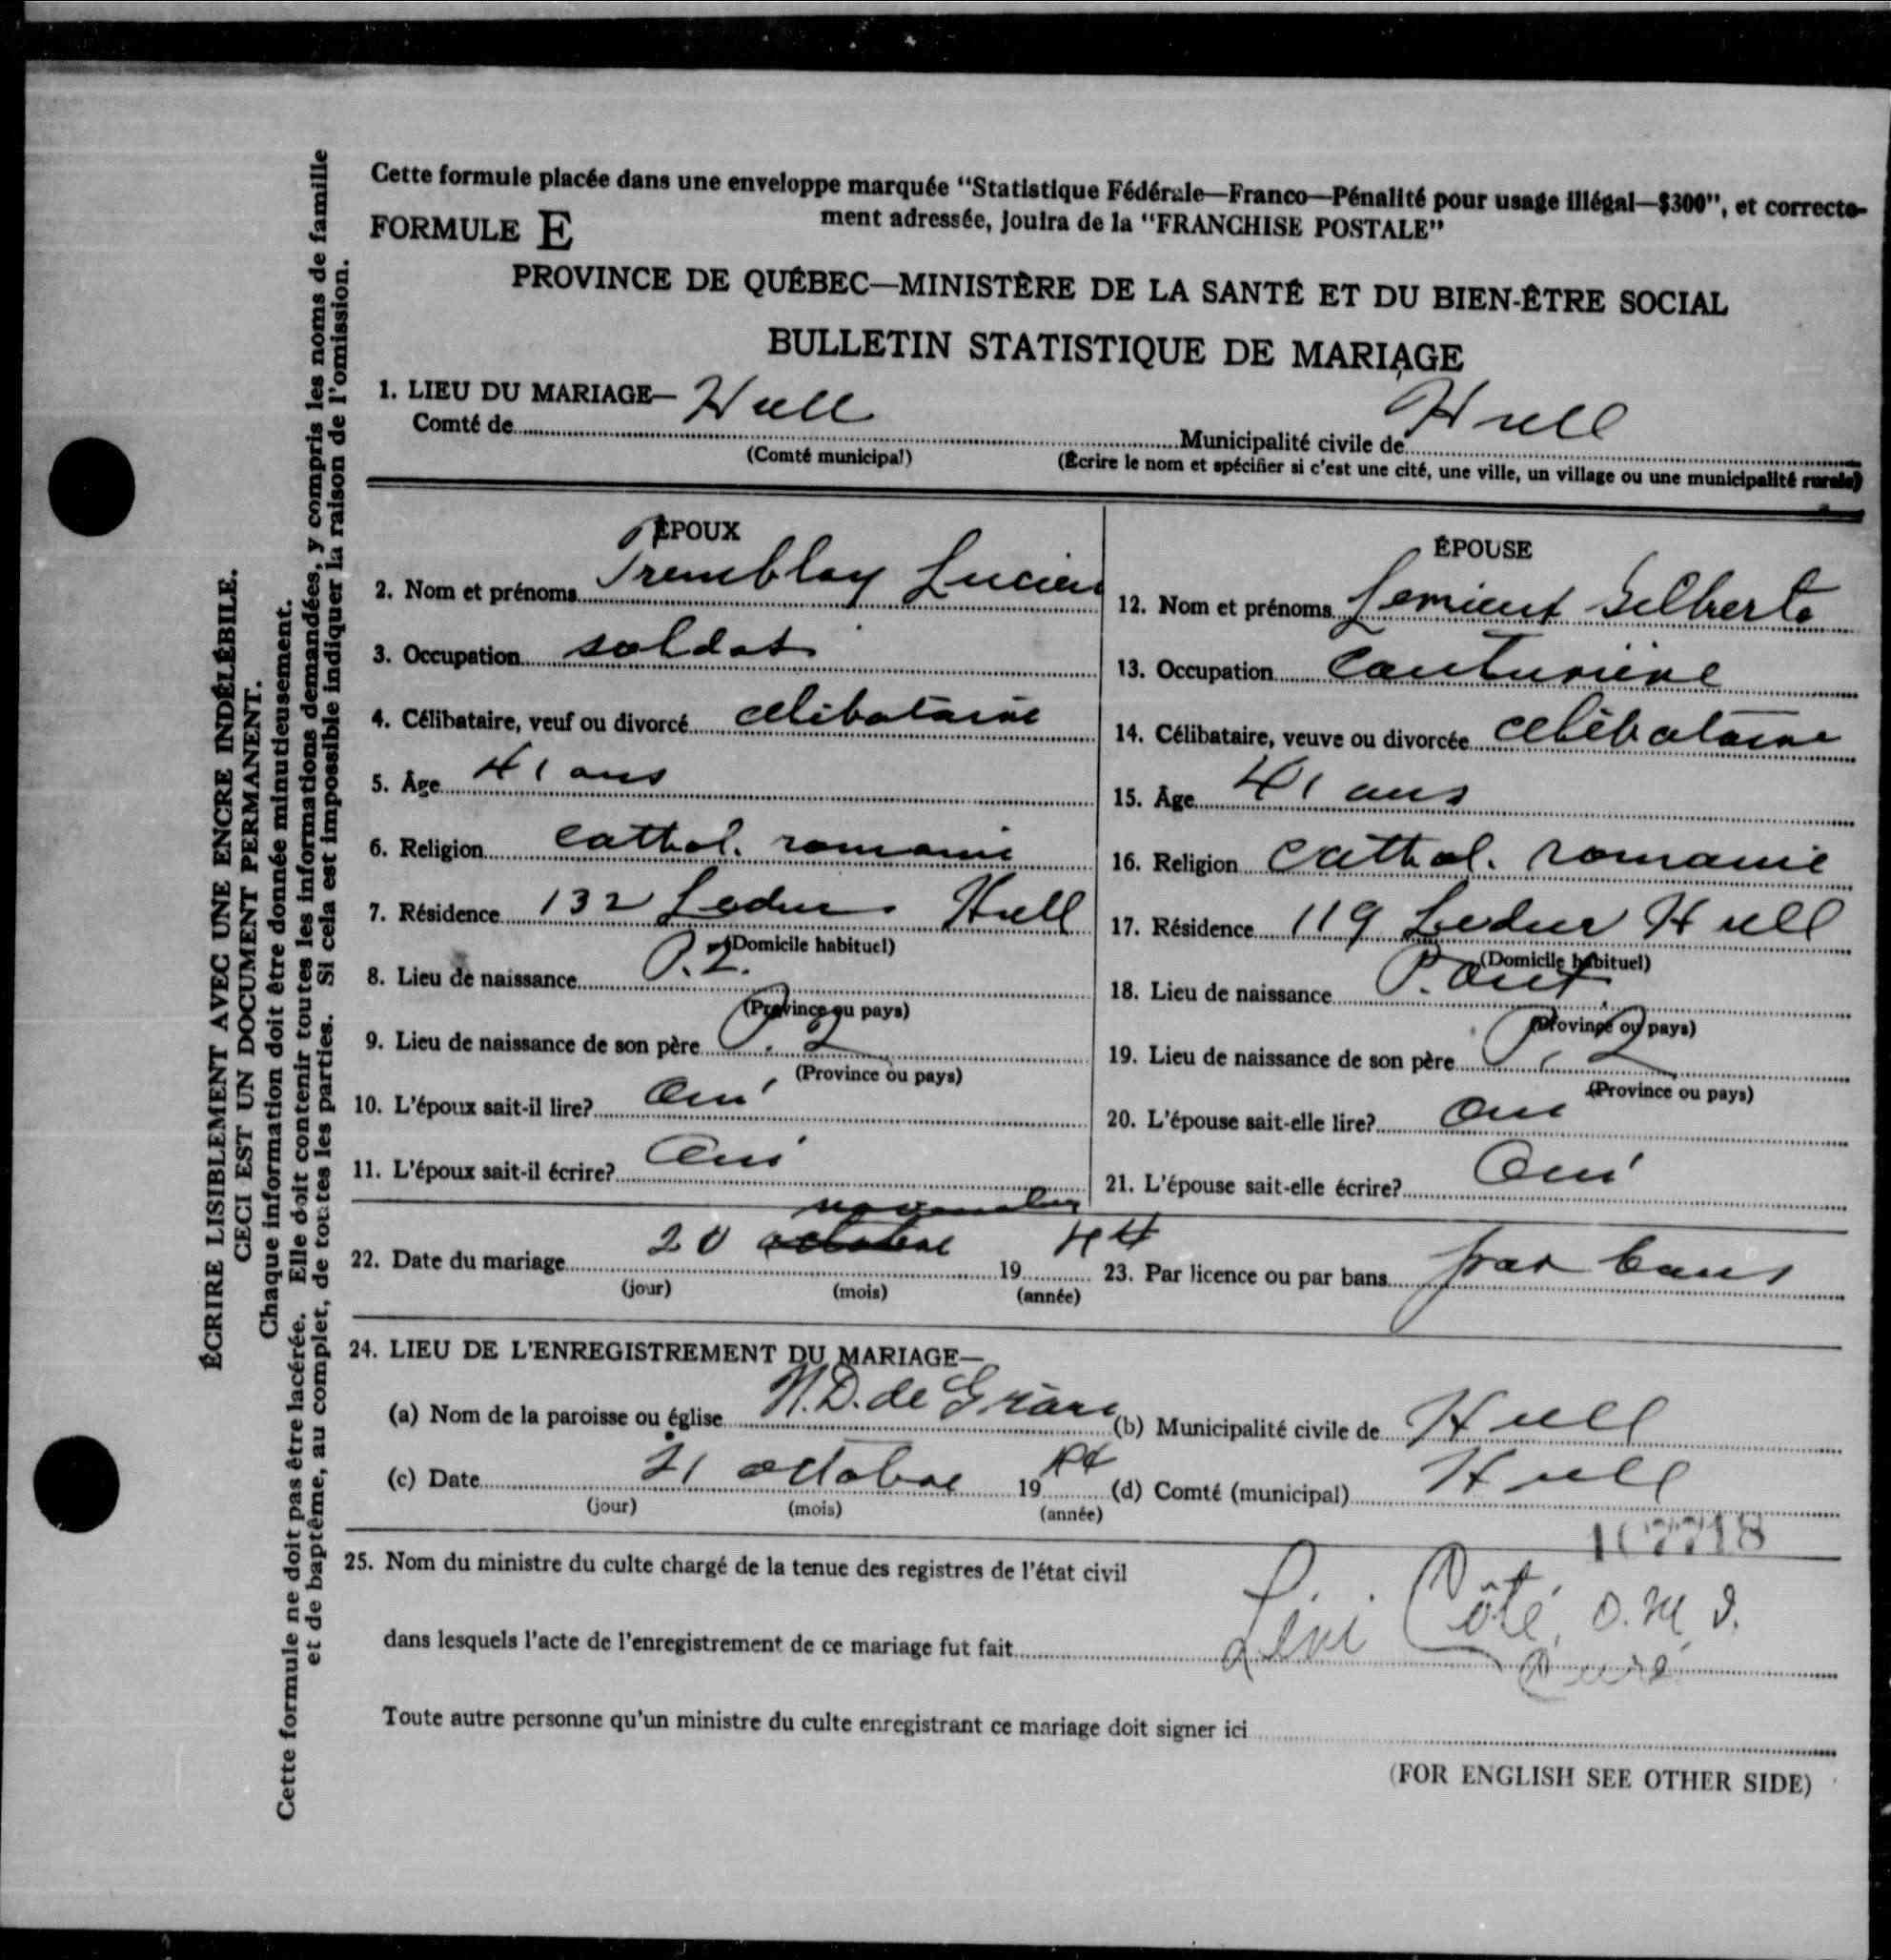 Cette formule placée dans une enveloppe marquée "Statistique Fédérale—Franco—Pénalité pour usage illégal—$300", et correcte-
ment adressée, jouira de la "FRANCHISE POSTALE"
FORMULE E
PROVINCE DE QUÉBEC—MINISTÈRE DE LA SANTÉ ET DU BIEN-ÊTRE SOCIAL
BULLETIN STATISTIQUE DE MARIAGE
1. LIEU DU MARIAGE—
Comté de Hull Municipalité civile de Hull
(Comté municipal) (Écrire le nom et spécifier si c'est une cité, une ville, un village ou une municipalité rurale)
ÉPOUX
2. Nom et prénoms Tremblay Lucien
3. Occupation soldat
4. Célibataire, veuf ou divorcé celibataire
5. Âge 41 ans
6. Religion cathol. romaine
7. Résidence 132 Leduc Hull
(Domicile habituel)
8. Lieu de naissance P.Q.
(Province ou pays)
9. Lieu de naissance de son père P.Q
(Province ou pays)
10. L'époux sait-il lire? Oui
11. L'époux sait-il écrire? Oui
ÉPOUSE
12. Nom et prénoms Gilberte
13. Occupation Couturière
14. Célibataire, veuve ou divorcée celibataire
15. Âge 41 ans
16. Religion cathol. romaine
17. Résidence 119 Leduc Hull
(Domicile habituel)
18. Lieu de naissance P. Ont.
(Province ou pays)
19. Lieu de naissance de son père P.Q
(Province ou pays)
20. L'épouse sait-elle lire? Oui
21. L'épouse sait-elle écrire? Oui
novembre
22. Date du mariage 20 octobre 1944 23. Par licence ou par bans par bans
(jour) (mois) (année)
24. LIEU DE L'ENREGISTREMENT DU MARIAGE—
(a) Nom de la paroisse ou église N.D. de Grâce (b) Municipalité civile de Hull
(c) Date 21 octobre 1944 (d) Comté (municipal) Hull
(jour) (mois) (année)
107718
25. Nom du ministre du culte chargé de la tenue des registres de l'état civil
dans lesquels l'acte de l'enregistrement de ce mariage fut fait Lévi Côté, o.m.i.
Curé
Toute autre personne qu'un ministre du culte enregistrant ce mariage doit signer ici
(FOR ENGLISH SEE OTHER SIDE)
ÉCRIRE LISIBLEMENT AVEC UNE ENCRE INDÉLÉBILE.
CECI EST UN DOCUMENT PERMANENT.
Chaque information doit être donnée minutieusement.
Cette formule ne doit pas être lacérée. Elle doit contenir toutes les informations demandées, y compris les noms de famille
et de baptême, au complet, de toutes les parties. Si cela est impossible indiquer la raison de l'omission.